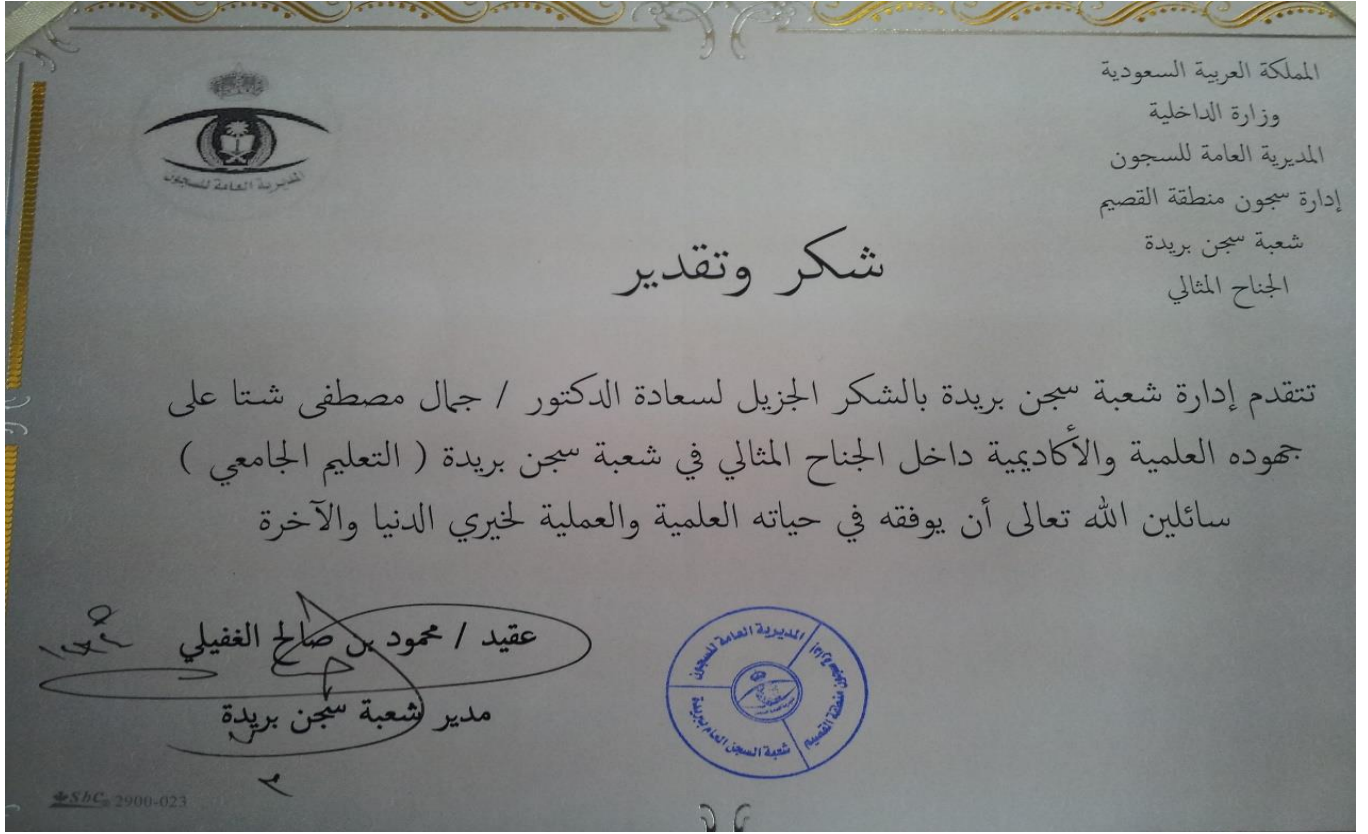 المملكة العربية السعودية
وزارة الداخلية
المديرية العامة للسجون
إدارة سجون منطقة القصيم
شعبة سجن بريدة
الجناح المثالي
المديرية العامة للسجون
شكر وتقدير
تتقدم إدارة شعبة سجن بريدة بالشكر الجزيل لسعادة الدكتور / جمال مصطفى شتا على
جهوده العلمية والأكاديمية داخل الجناح المثالي في شعبة سجن بريدة ( التعليم الجامعي )
سائلين الله تعالى أن يوفقه في حياته العلمية والعملية لخيري الدنيا والآخرة
عقيد / محمود بن صالح الغفيلي
مدير شعبة سجن بريدة
المديرية العامة للسجون
إدارة سجون منطقة القصيم
شعبة السجن العام ببريدة
SbC 2900-023